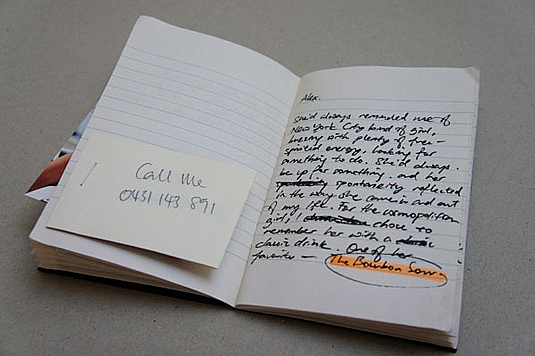 Call Me
0431 143 891
Alex.
She'd always reminded me of
New York City kind of girl,
buzzing with plenty of free-
spirited energy, looking for
something to do. She'd always
be up for something, and her
spontaneity reflected
in the way she came in and out
of my life. For the cosmopolitan
girl, I chose to
remember her with a
classic drink. One of her
favorite —
The Bourbon Sour.